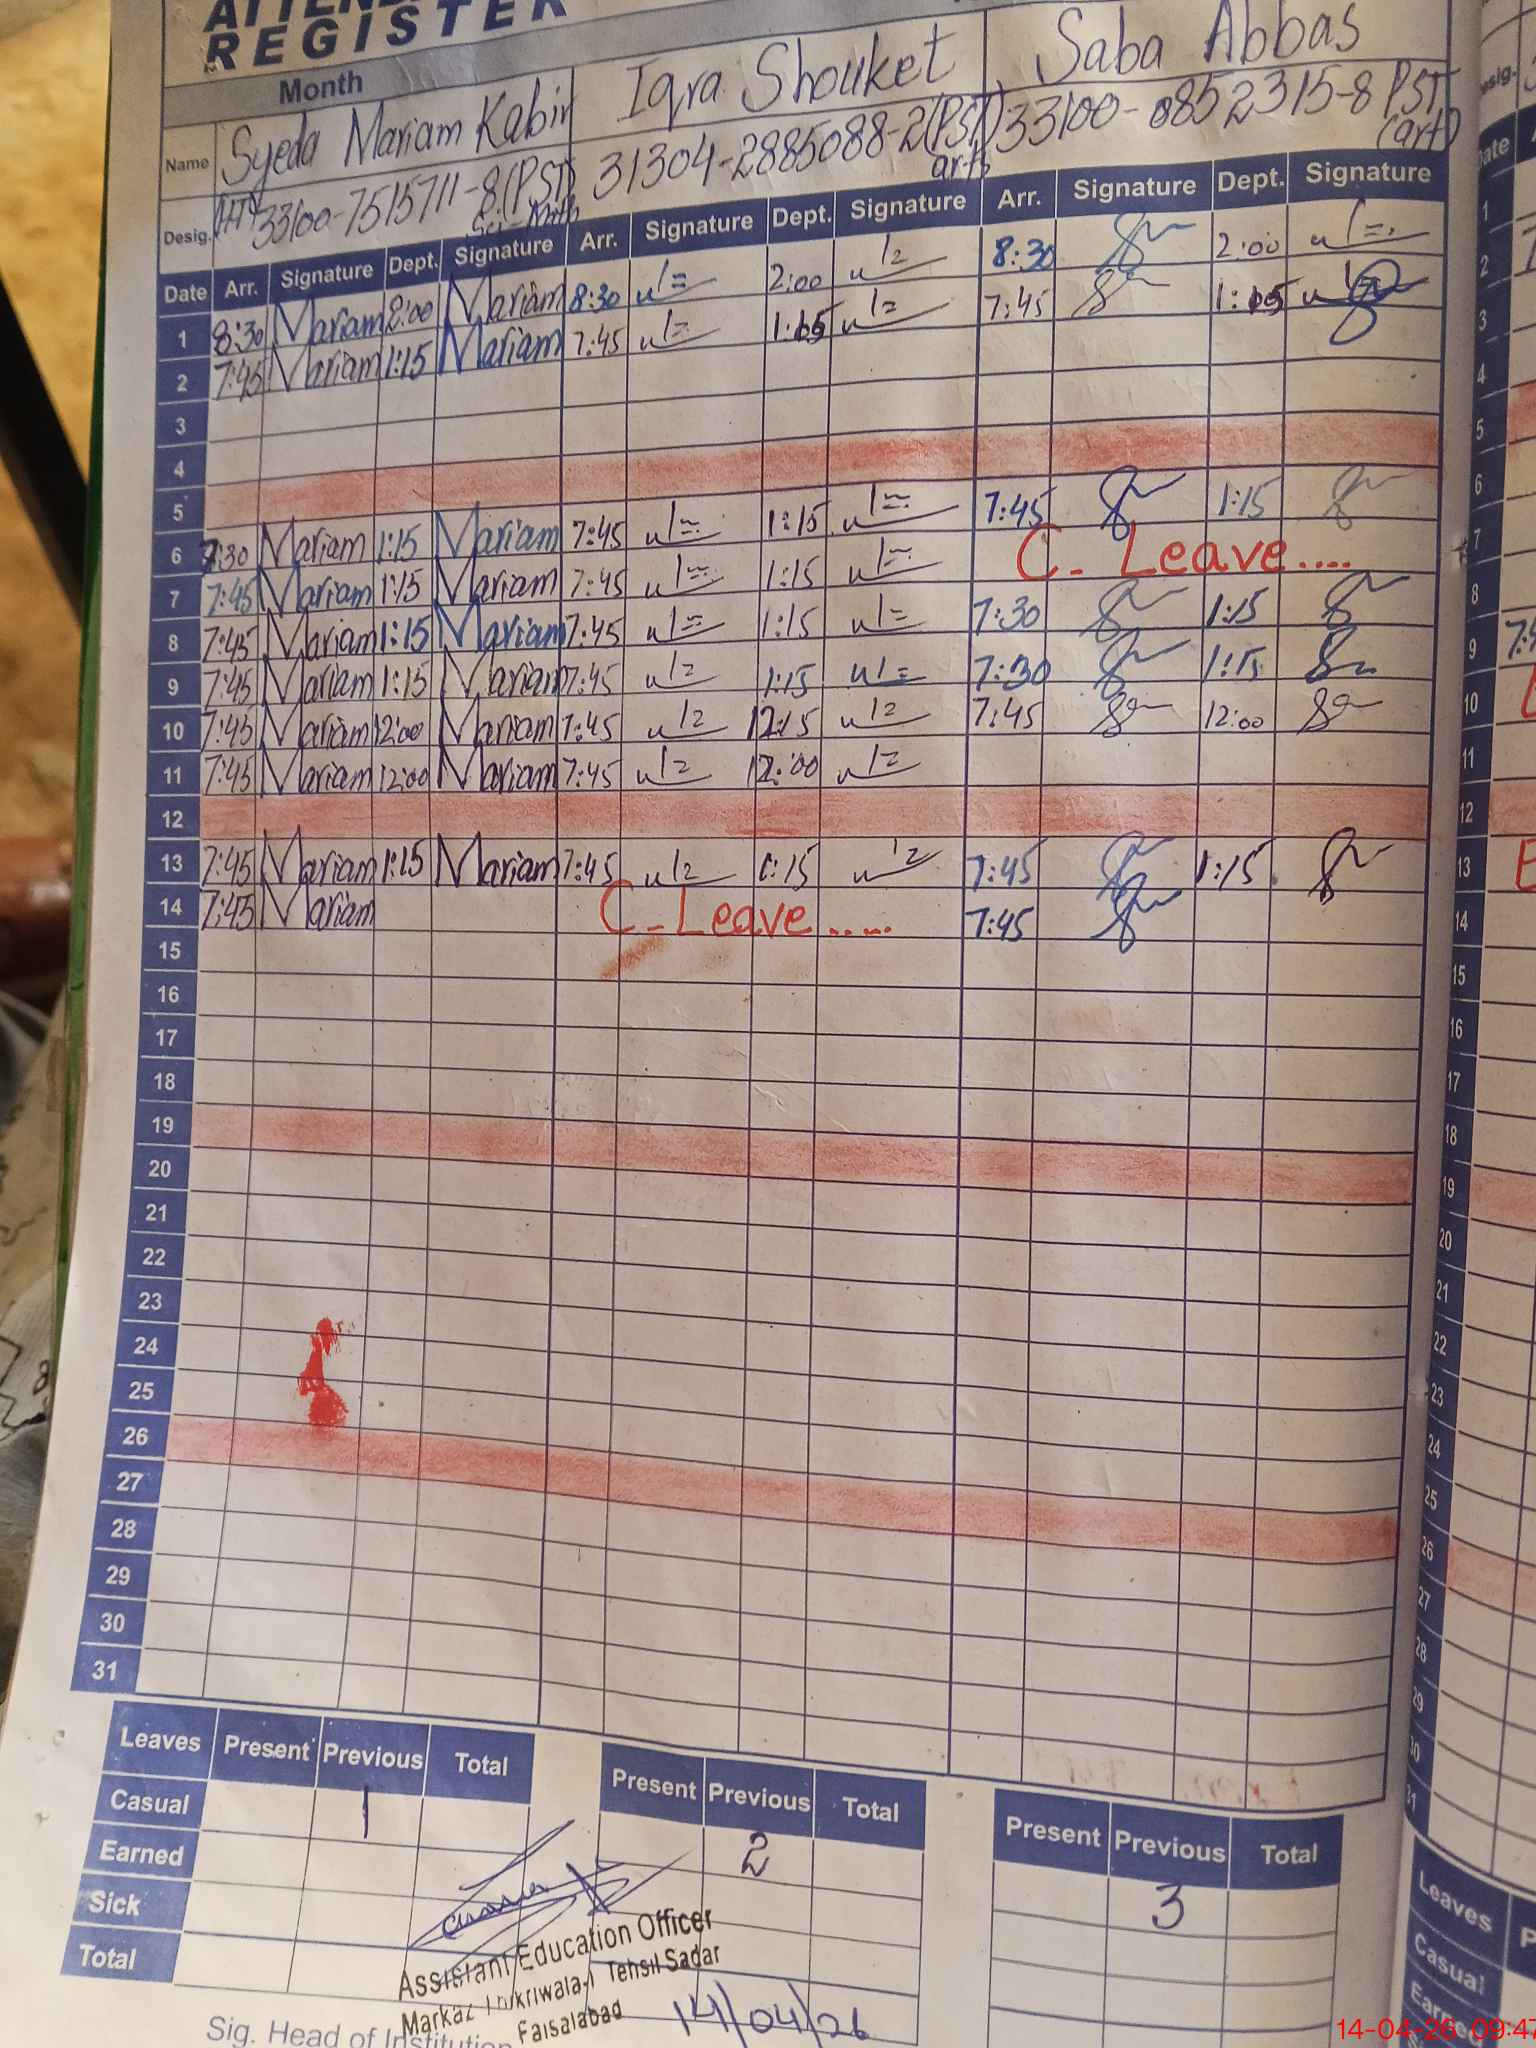 REGISTER
Month
Name Syeda Mariam Kabir Iqra Shouket Saba Abbas
Desig. 33100-7515711-8(PST) 31304-2885088-2(PST) arts 33100-0852315-8 PST (art)
Date Arr. Signature Dept. Signature Arr. Signature Dept. Signature Arr. Signature Dept. Signature
1 8:30 Mariam 2:00 Mariam 8:30 2:00 8:30 2:00
2 7:45 Mariam 1:15 Mariam 7:45 1:15 7:45 1:15
3
4
5
6 7:30 Mariam 1:15 Mariam 7:45 1:15 7:45 1:15
7 7:45 Mariam 1:15 Mariam 7:45 1:15 C- Leave....
8 7:45 Mariam 1:15 Mariam 7:45 1:15 7:30 1:15
9 7:45 Mariam 1:15 Mariam 7:45 1:15 7:30 1:15
10 7:45 Mariam 12:00 Mariam 7:45 12:15 7:45 12:00
11 7:45 Mariam 12:00 Mariam 7:45 12:00
12
13 7:45 Mariam 1:15 Mariam 7:45 1:15 7:45 1:15
14 7:45 Mariam C-Leave..... 7:45
15
16
17
18
19
20
21
22
23
24
25
26
27
28
29
30
31
Leaves Present Previous Total Present Previous Total Present Previous Total
Casual 1 2 3
Earned
Sick
Total
Assistant Education Officer
Tehsil Sadar
Faisalabad
14/04/26
Sig. Head of Institution
14-04-26 09:47